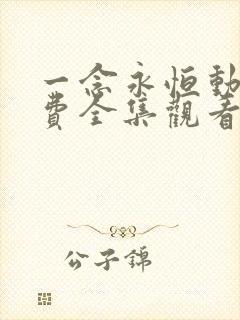 一念永恒動
費全集觀看
公子錦